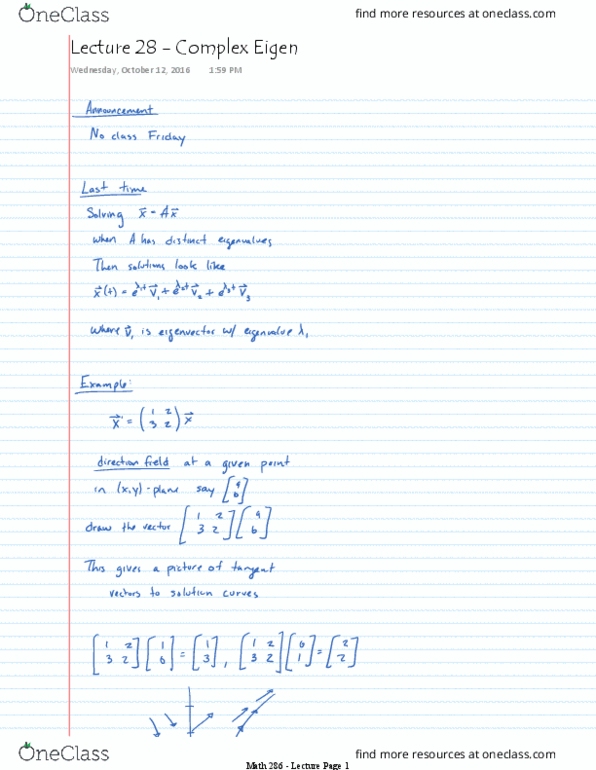 OneClass find more resources at oneclass.com
Lecture 28 – Complex Eigen
Wednesday, October 12, 2016 1:59 PM
Announcement
No class Friday
Last time
Solving x⃗ = Ax⃗
when A has distinct eigenvalues
Then solutions look like
x⃗(t) = e^λ₁t v⃗₁ + e^λ₂t v⃗₂ + e^λ₃t v⃗₃
where v⃗₁ is eigenvector w/ eigenvalue λ₁
Example:
x⃗' = (1 2 3 2) x⃗
direction field at a given point
in (x,y)-plane say [a b]
draw the vector [1 2 3 2] [a b]
This gives a picture of tangent
vectors to solution curves
[1 2 3 2] [1 0] = [1 3], [1 2 3 2] [0 1] = [2 2]
OneClass find more resources at oneclass.com
Math 286 - Lecture Page 1